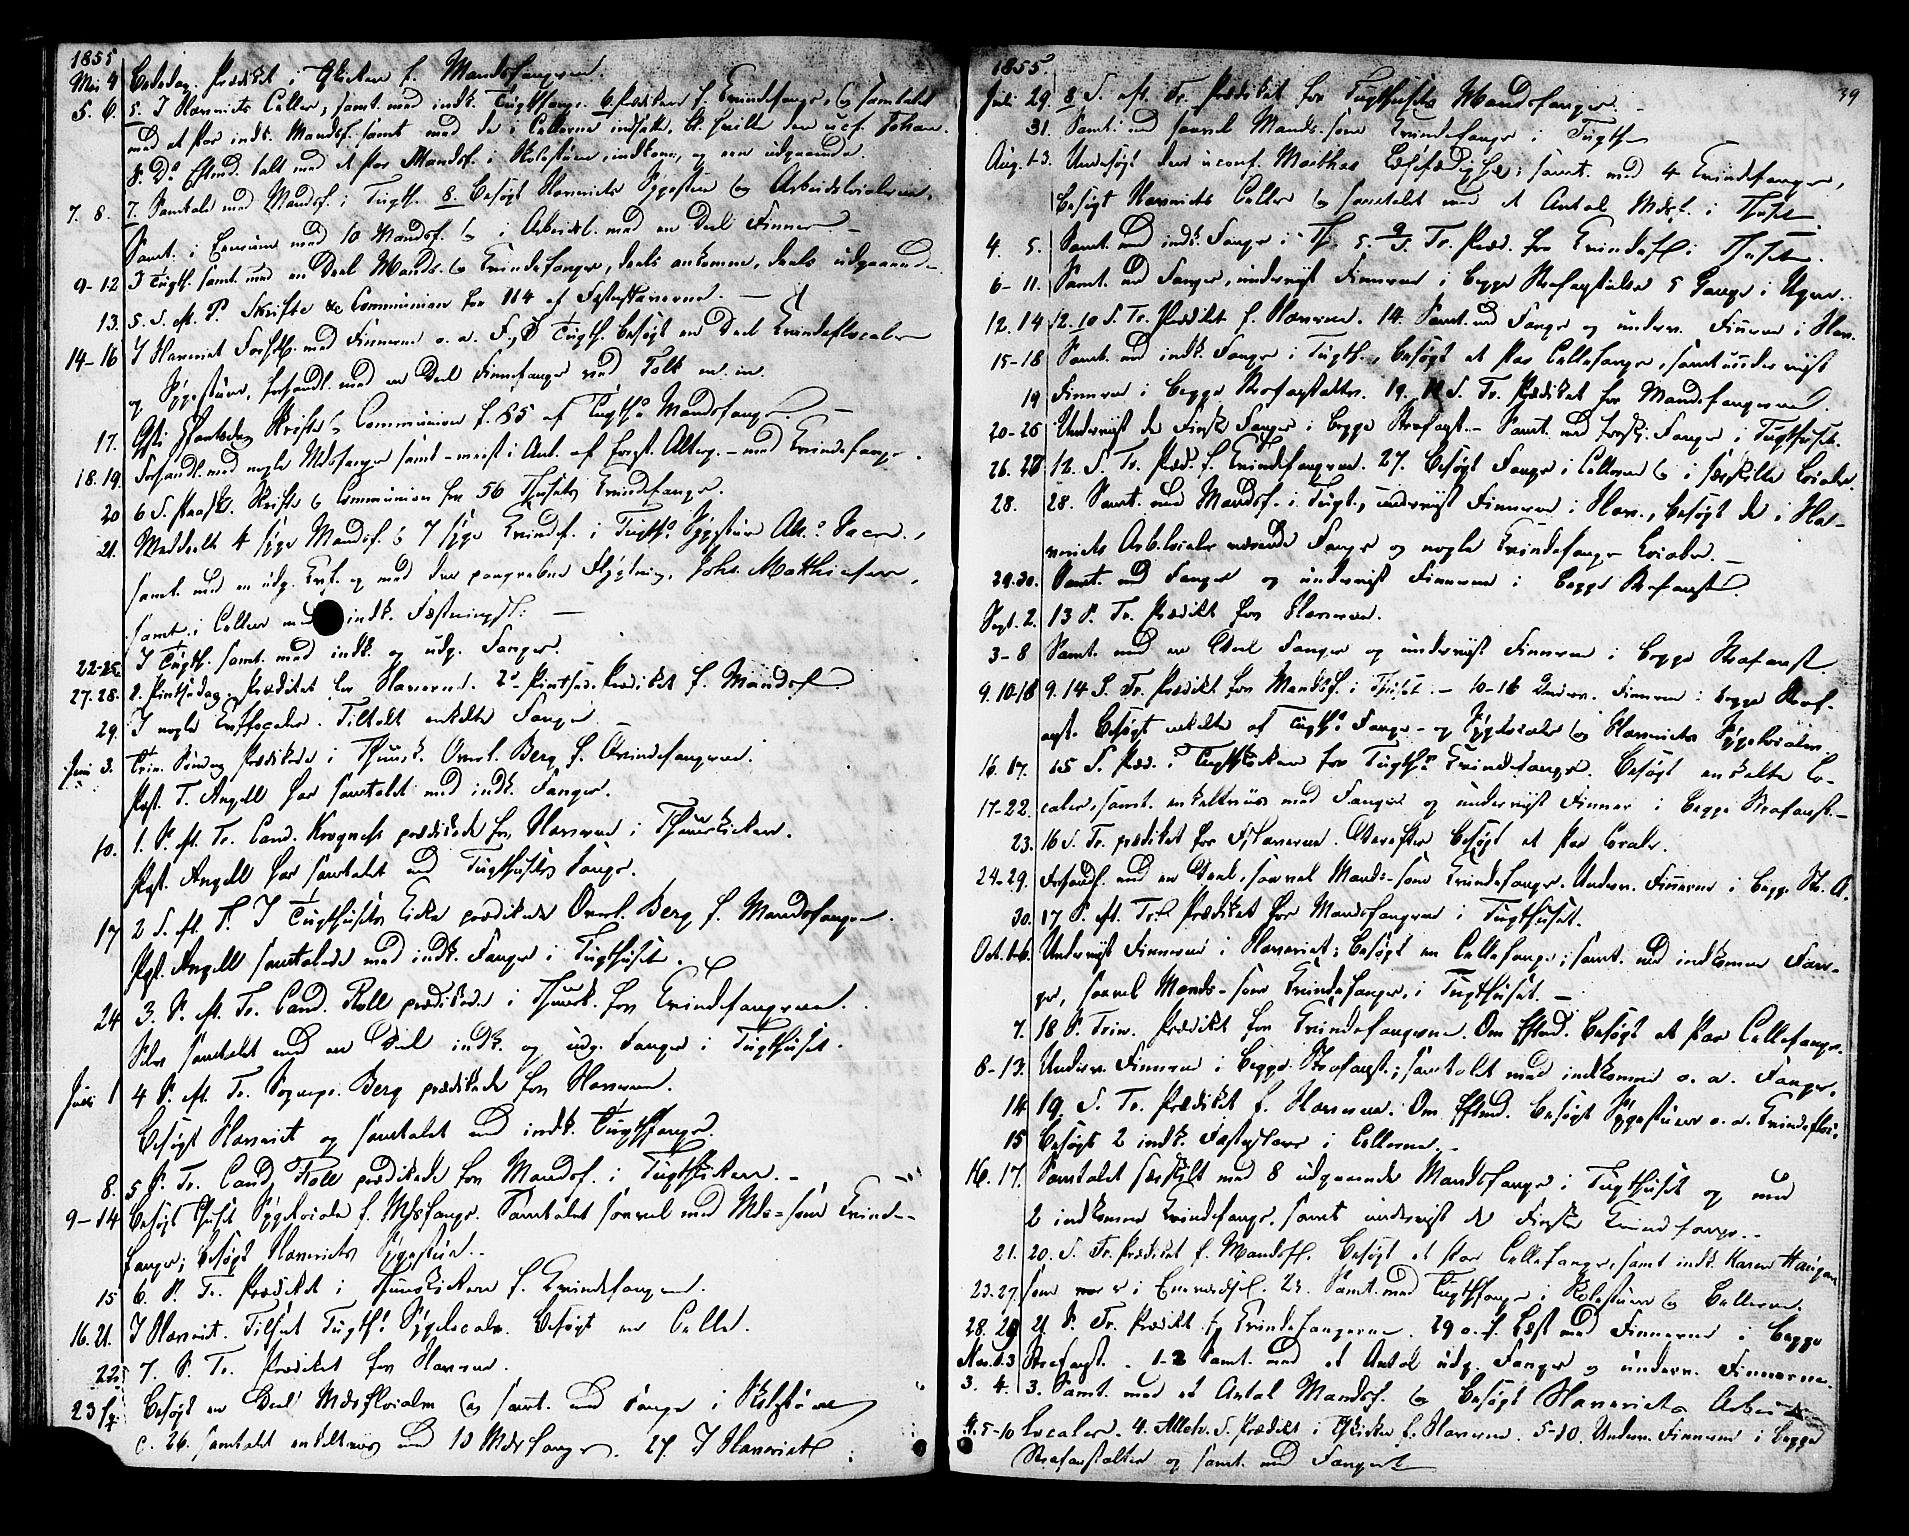 1855
Mai 4 Bededag. Prædiket i Thkirken f. Mandsfangerne.
5. 6. 5. I Slaveriets Celler, samt. med indk. Tugthfange. 6. Prædiken f. Qvindefange, og samtalet
med et Par indk. Mandsf. samt med de i Cellerne indsatte,
S. D. Eftmd. talt med et Par Mandsf. i Skolestuen, indkom. og een udgaaende.
7. 8. 7. Samtale med Mandsf. i Tugth. 8. Besøgt Slaveriets Sygestue og Arbeidslocalerne,
Samt. i Eenrum med 10 Mandsf. og i Arbeidsl. med en Deel Finner —
9-12 I Tugth. samt. med en Deel Mands- og Qvindefanger, deels ankomne, deels udgaaende
13. 5. S. eft. P. Skrifte & Communion for 114 af Fæstnslaverne. —
14-16 I Slaveriet Forhdl. med Finnerne o. a. F. I Tugth. besøgt en Deel Qvindeflocaler
og Sygestuer, forhandl. med en Deel Finnefanger med Tolk m. m.
17. Chr: Himmelsdag Skrifte & Communion f. 85 af Tugth. Mandsfange. —
18. 19. Forhandl. med nogle Mdsfanger samt - meest i Anl. af forest. Alterg. - med Qvindefange.
20 6 S. Paaske. Skrifte & Communion for 56 Thusets Qvindefange.
21. Meddeelt 4 syge Mandsf. & 7 syge Qvindf. i Tugth. Sygestuer Alt. Sacr.,
samt. med en udg. Qvf. og med den paagrebne Flygtning, Johs. Mathiesen,
samt. i Cellen med indk. Fæstningsf: —
22-26 I Tugth. samt. med indk. og udg. Fanger.
27. 28. 1. Pintsedag. Prædiket for Slaverne. 2. Pintsed. Prædiket f. Mandsf.
29. I nogle Qvflocaler. Tiltalt enkelte Fanger —
Juni 3. Trin. Søndag Prædikede i Thuusk. Overl. Berg f. Qvindefangerne.
Past. T. Angell har samtalet med indk. Fanger.
10. 1. S. eft. Tr. Cand. Krogness prædikede for Slaverne i Thuuskirken.
Past. Angell har samtalet med Tugthusets Fange.
17 2 S. eft. T. I Tugthusets Kirke prædikede Overl. Berg f. Mandsfangerne.
Past. Angell samtalede med indk. Fanger i Tugthuset.
24 3. S. eft. Tr. Cand. Roll prædikede i Thuusk. for Qvindefangerne.
Selv samtalet med en Deel indk. og udg. Fanger i Tugthuset.
Juli 1 4 S. eft. Tr. Sognepr. Berg prædikede for Slaverne.
Besøgt Slaveriet og samtalet med indk. Tugthfange.
8. 5 S. Tr. Cand. Roll prædikede for Mandsf. i Tugthkirken. —
9-14 Besøgt Thuset Sygelocale f. Mdsfange. Samtalet saavel med Mds- som Qvinde-
fange; besøgt Slaveriets Sygestue.
15 6. S. Tr. Prædiket i Thuuskirken f. Qvindefangerne.
16. 21. I Slaveriet. Tilseet Tugth. Sygelocaler. Besøgt en Celle.
22. 7. S. Tr. Prædiket for Slaverne.
23 Besøgt en Deel Mdsflocaler og samt. med Fange i Skolestuen
26. samtalet enkeltviis med 10 Mdsfanger. 27. I Slaveriet
39
1855.
Juli 29. 8 S. eft. Tr. Prædiket for Tugthusets Mandsfanger. —
31. Samt. med saavel Mands- som Qvindefange i Tugth —
Aug. 1-3. Undersøgt den uconf. Læsefærdighed; samt. med 4 Qvindefanger,
besøgt Slaveriets Celler og samtalet med et Antal Mdsf. i Thuset
4. 5. Samt. med indk. Fanger i Th. 5. 9 S. Tr. Præd. for Qvindef. i Thuset.
6-11. Samt. med Fanger, underviist Finnerne i begge Strafanstalter 5 Gange i Ugen.
12. 14 12. 10 S. Tr. Prædiket f. Slaverne. 14. Samt. med Fanger og underv. Finnerne i Slav.
15-18 Samt. med indk. Fange i Tugth., besøgt et Par Cellefanger, samt underviist
19 Finnerne i begge Strafanstalter. 19. 11 S. Tr. Prædiket for Mandsfangerne.
20-25 Underviist de Finske Fanger i begge Strafanst. - Samt. med forsk. Fanger i Tugthuset.
26. 27 12. S. Tr. Præd. f. Qvindefangerne. 27. Besøgt Fanger i Cellerne og i særskilte Localer.
28. 28. Samt. med Mandsf. i Tugt., underviist Finnerne i Slav., besøgt de i Sla-
veriets Arb.localer værende Fanger og nogle Qvindefange Localer. —
29. 30. Samt. med Fanger og underviist Finnerne i begge Strafanst.
Sept. 2. 13 S. Tr. Prædiket for Slaverne.
3-8 Samt. med en Deel Fanger og underviist Finnerne i begge Strafanst.
9. 10-15 9. 14 S. Tr. Prædiket for Mandsf. i Thuset. - 10-15 Underv. Finnerne i begge Straf-
anst. Besøgt enkelte af Tugth. Fange - og Sygelocaler og Slaveriets Sygelocaler.
16. 17. 15 S. Præd. i Tugthkirken for Tugth. Qvindefange. Besøgt enkelte Lo-
17-22. caler, samt. enkeltviis med Fanger og underviist Finner i begge Strafanst. —
23. 16 S. Tr. prædiket for Slaverne. Derefter besøgt et Par Localer.
24-29. Forhandl. med en Deel, saavel Mands- som Qvindefange. Underv. Finnerne i begge St. A.
30. 17 S. eft. Tr. Prædiket for Mandsfangerne i Tugthuset.
Oct. 1-6. Underviist Finnerne i Slaveriet; besøgt en Cellefange; samt. med indkomne Fan-
ger, saavel Mands- som Qvindefanger, i Tugthuset. —
7. 18 S. Trin. Prædiket for Qvindefangerne. Om Eftmd. besøgt et Par Cellefanger.
8-13. Underv. Finnerne i begge Strafanst.; samtalet med indkomne o. a. Fanger.
14 19. S. Tr. Prædiket f. Slaverne. Om Eftmd. besøgt Sygestuer o. a.
15 Besøgt 2 indk. Fæstnslaver i Cellerne. —
16. 17. Samtalet særskilt med 8 udgaaende Mandsfange i Tugthuset og med
2 indkomne Qvindefange, samt underviist de Finske Qvindefange. —
21. 20. S. Tr. Prædiket f. Mandsf. Besøgt et Par Cellefange, samt indk. Karen Haugen
23. 27. som var i Eenrum. 23. Samt. med Tugthfange i Skolestuen og Cellerne.
28. 29 21 S. Tr. Prædiket f. Qvindefangerne. 29 o. f. Læst med Finnerne i begge
Nov. 1-3 Strafanst. - 1-2 Samt. med et Antal udg. Fanger og underv. Finnerne.
3. 4. 3. Samt. med et Antal Mandsf. og besøgt Slaveriets Arbeids
4. 5-10 Localer. 4. Alleh. S. Prædiket i Thkirken f. Slaverne. 5-10. Underv. Finnerne i begge
Strafanstalter og samt. med Fanger